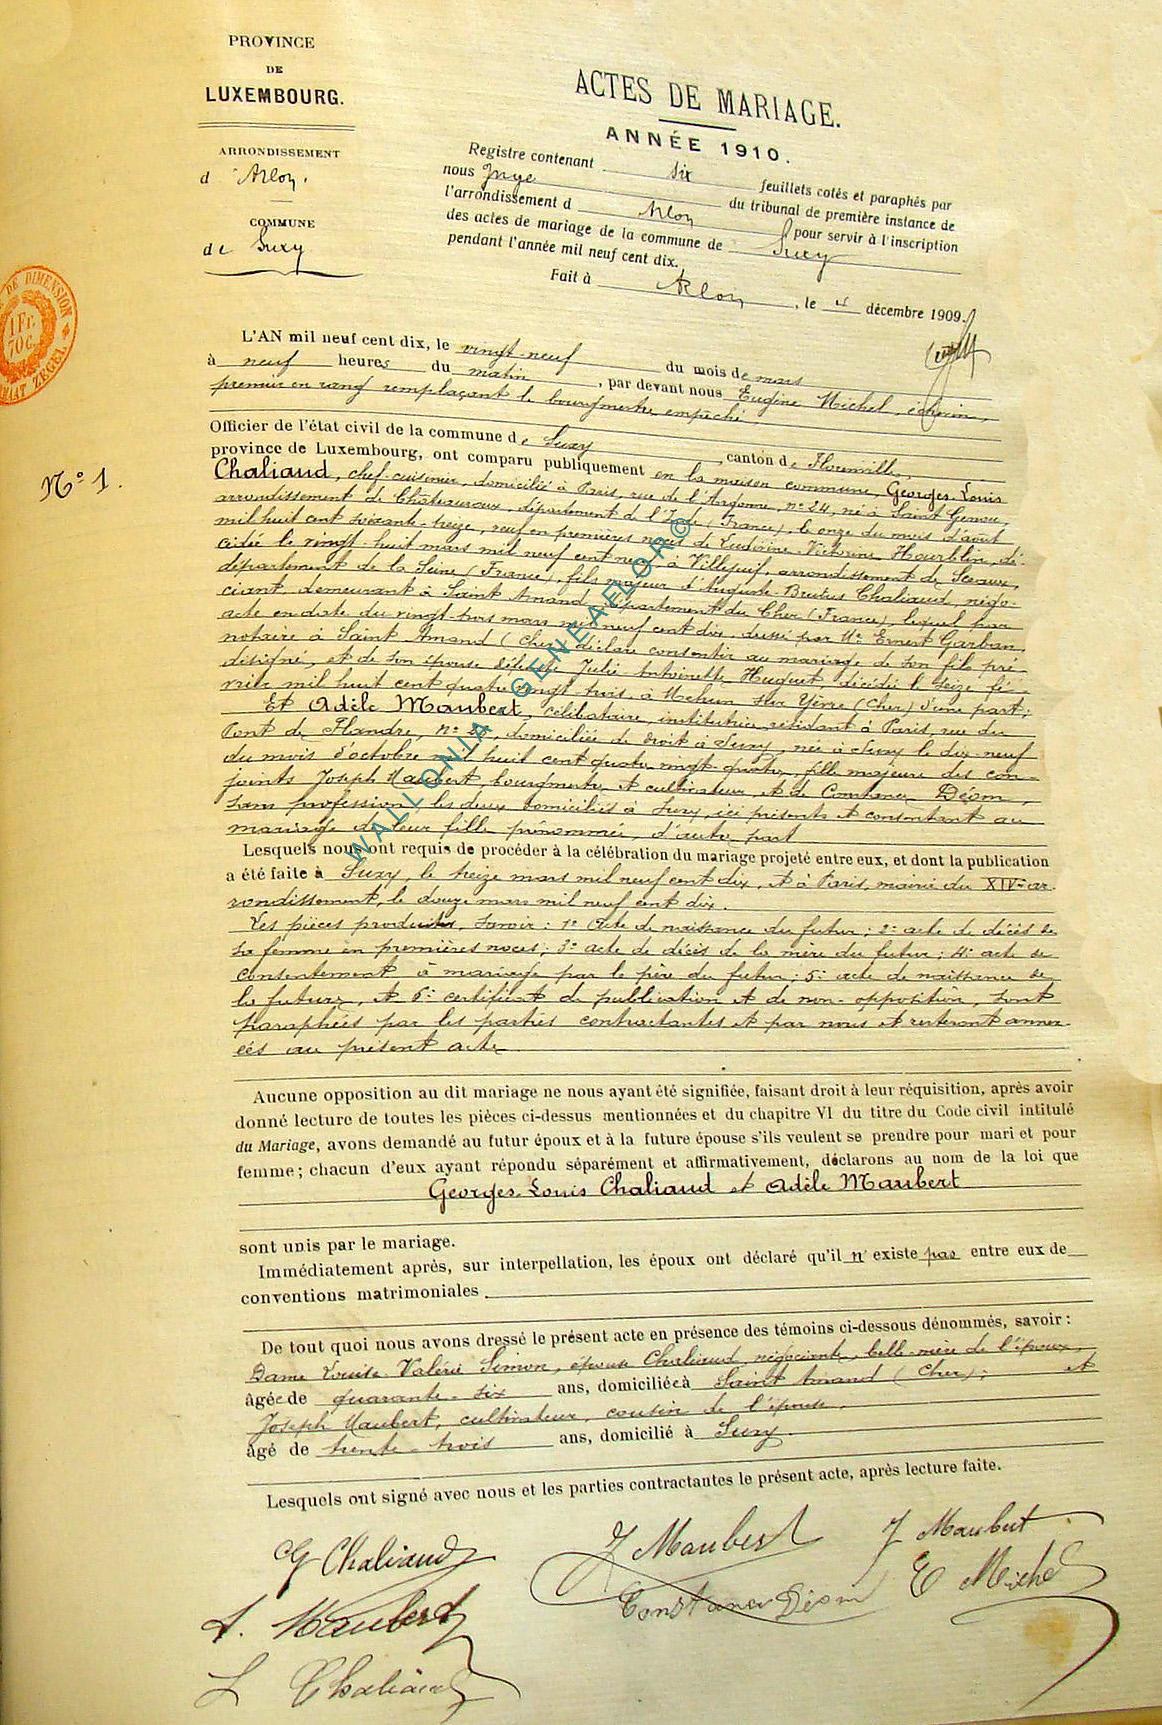 PROVINCE
DE
LUXEMBOURG.
ARRONDISSEMENT
d'Arlon.
COMMUNE
de Suxy
ACTES DE MARIAGE.
ANNÉE 1910.
Registre contenant six feuillets cotés et paraphés par
nous Juge du tribunal de première instance de
l'arrondissement d Arlon pour servir à l'inscription
des actes de mariage de la commune de Suxy
pendant l'année mil neuf cent dix.
Fait à Arlon, le 4 décembre 1909.
DE DIMENSION
1 Fr.
70 C.
ZEGEL
N° 1.
L'AN mil neuf cent dix, le vingt-neuf du mois de mars
à neuf heures du matin, par devant nous Eugène Michel, échevin,
premier en rang remplaçant le bourgmestre empêché,
Officier de l'état civil de la commune de Suxy, canton de Florenville,
province de Luxembourg, ont comparu publiquement en la maison commune, Georges Louis
Chaliaud, chef-cuisinier, domicilié à Paris, rue de l'Argonne, n° 24, né à Saint Genou,
arrondissement de Châteauroux, département de l'Indre (France), le onze du mois d'août
mil huit cent soixante-seize, veuf en premières noces de Victorine Hourblin, dé-
cédée le vingt-huit mars mil neuf cent neuf, à Villejuif, arrondissement de Sceaux,
département de la Seine (France), fils majeur d'Auguste-Brutus Chaliaud, négo-
ciant, demeurant à Saint Amand, département du Cher (France), lequel par
acte en date du vingt-trois mars mil neuf cent dix, dressé par Me Ernest Garban,
notaire à Saint Amand (Cher) déclare consentir au mariage de son fils pré-
désigné, et de son épouse décédée Julie Antoinette Huguet, décédée le seize fé-
vrier mil huit cent quatre vingt-trois, à Mehun sur Yèvre (Cher) d'une part;
Et Adèle Maubert, célibataire, institutrice, résidant à Paris, rue du
Pont de Flandre, n° domiciliée de droit à Suxy, née à Suxy le dix-neuf
du mois d'octobre mil huit cent quatre vingt-quatre, fille majeure des con-
joints Joseph Maubert, bourgmestre et cultivateur, et de Constance Déom,
sans profession, les deux domiciliés à Suxy, ici présents et consentant au
mariage de leur fille prénommée, d'autre part
Lesquels nous ont requis de procéder à la célébration du mariage projeté entre eux, et dont la publication
a été faite à Suxy, le treize mars mil neuf cent dix, et à Paris, mairie du XIVe ar-
rondissement, le douze mars mil neuf cent dix.
Les pièces produites, savoir: 1° acte de naissance du futur; 2° acte de décès de
sa femme en premières noces; 3° acte de décès de la mère du futur; 4° acte de
consentement à mariage par le père du futur; 5° acte de naissance de
la future, et 6° certificat de publication et de non-opposition, sont
paraphées par les parties contractantes et par nous et resteront annex-
ées au présent acte
Aucune opposition au dit mariage ne nous ayant été signifiée, faisant droit à leur réquisition, après avoir
donné lecture de toutes les pièces ci-dessus mentionnées et du chapitre VI du titre du Code civil intitulé
du Mariage, avons demandé au futur époux et à la future épouse s'ils veulent se prendre pour mari et pour
femme; chacun d'eux ayant répondu séparément et affirmativement, déclarons au nom de la loi que
Georges Louis Chaliaud et Adèle Maubert
sont unis par le mariage.
Immédiatement après, sur interpellation, les époux ont déclaré qu'il n'existe pas entre eux de
conventions matrimoniales.
De tout quoi nous avons dressé le présent acte en présence des témoins ci-dessous dénommés, savoir:
Dame Louise Valérie Simon, épouse Chaliaud, négociante, belle-mère de l'époux,
âgée de quarante-six ans, domiciliée à Saint Amand (Cher); et
Joseph Maubert, cultivateur, cousin de l'épouse,
âgé de trente-trois ans, domicilié à Suxy.
Lesquels ont signé avec nous et les parties contractantes le présent acte, après lecture faite.
G Chaliaud
J Maubert
J Maubert
A. Maubert
Constance Déom
E Michel
L Chaliaud
WALLONIA GENEAFLOR©